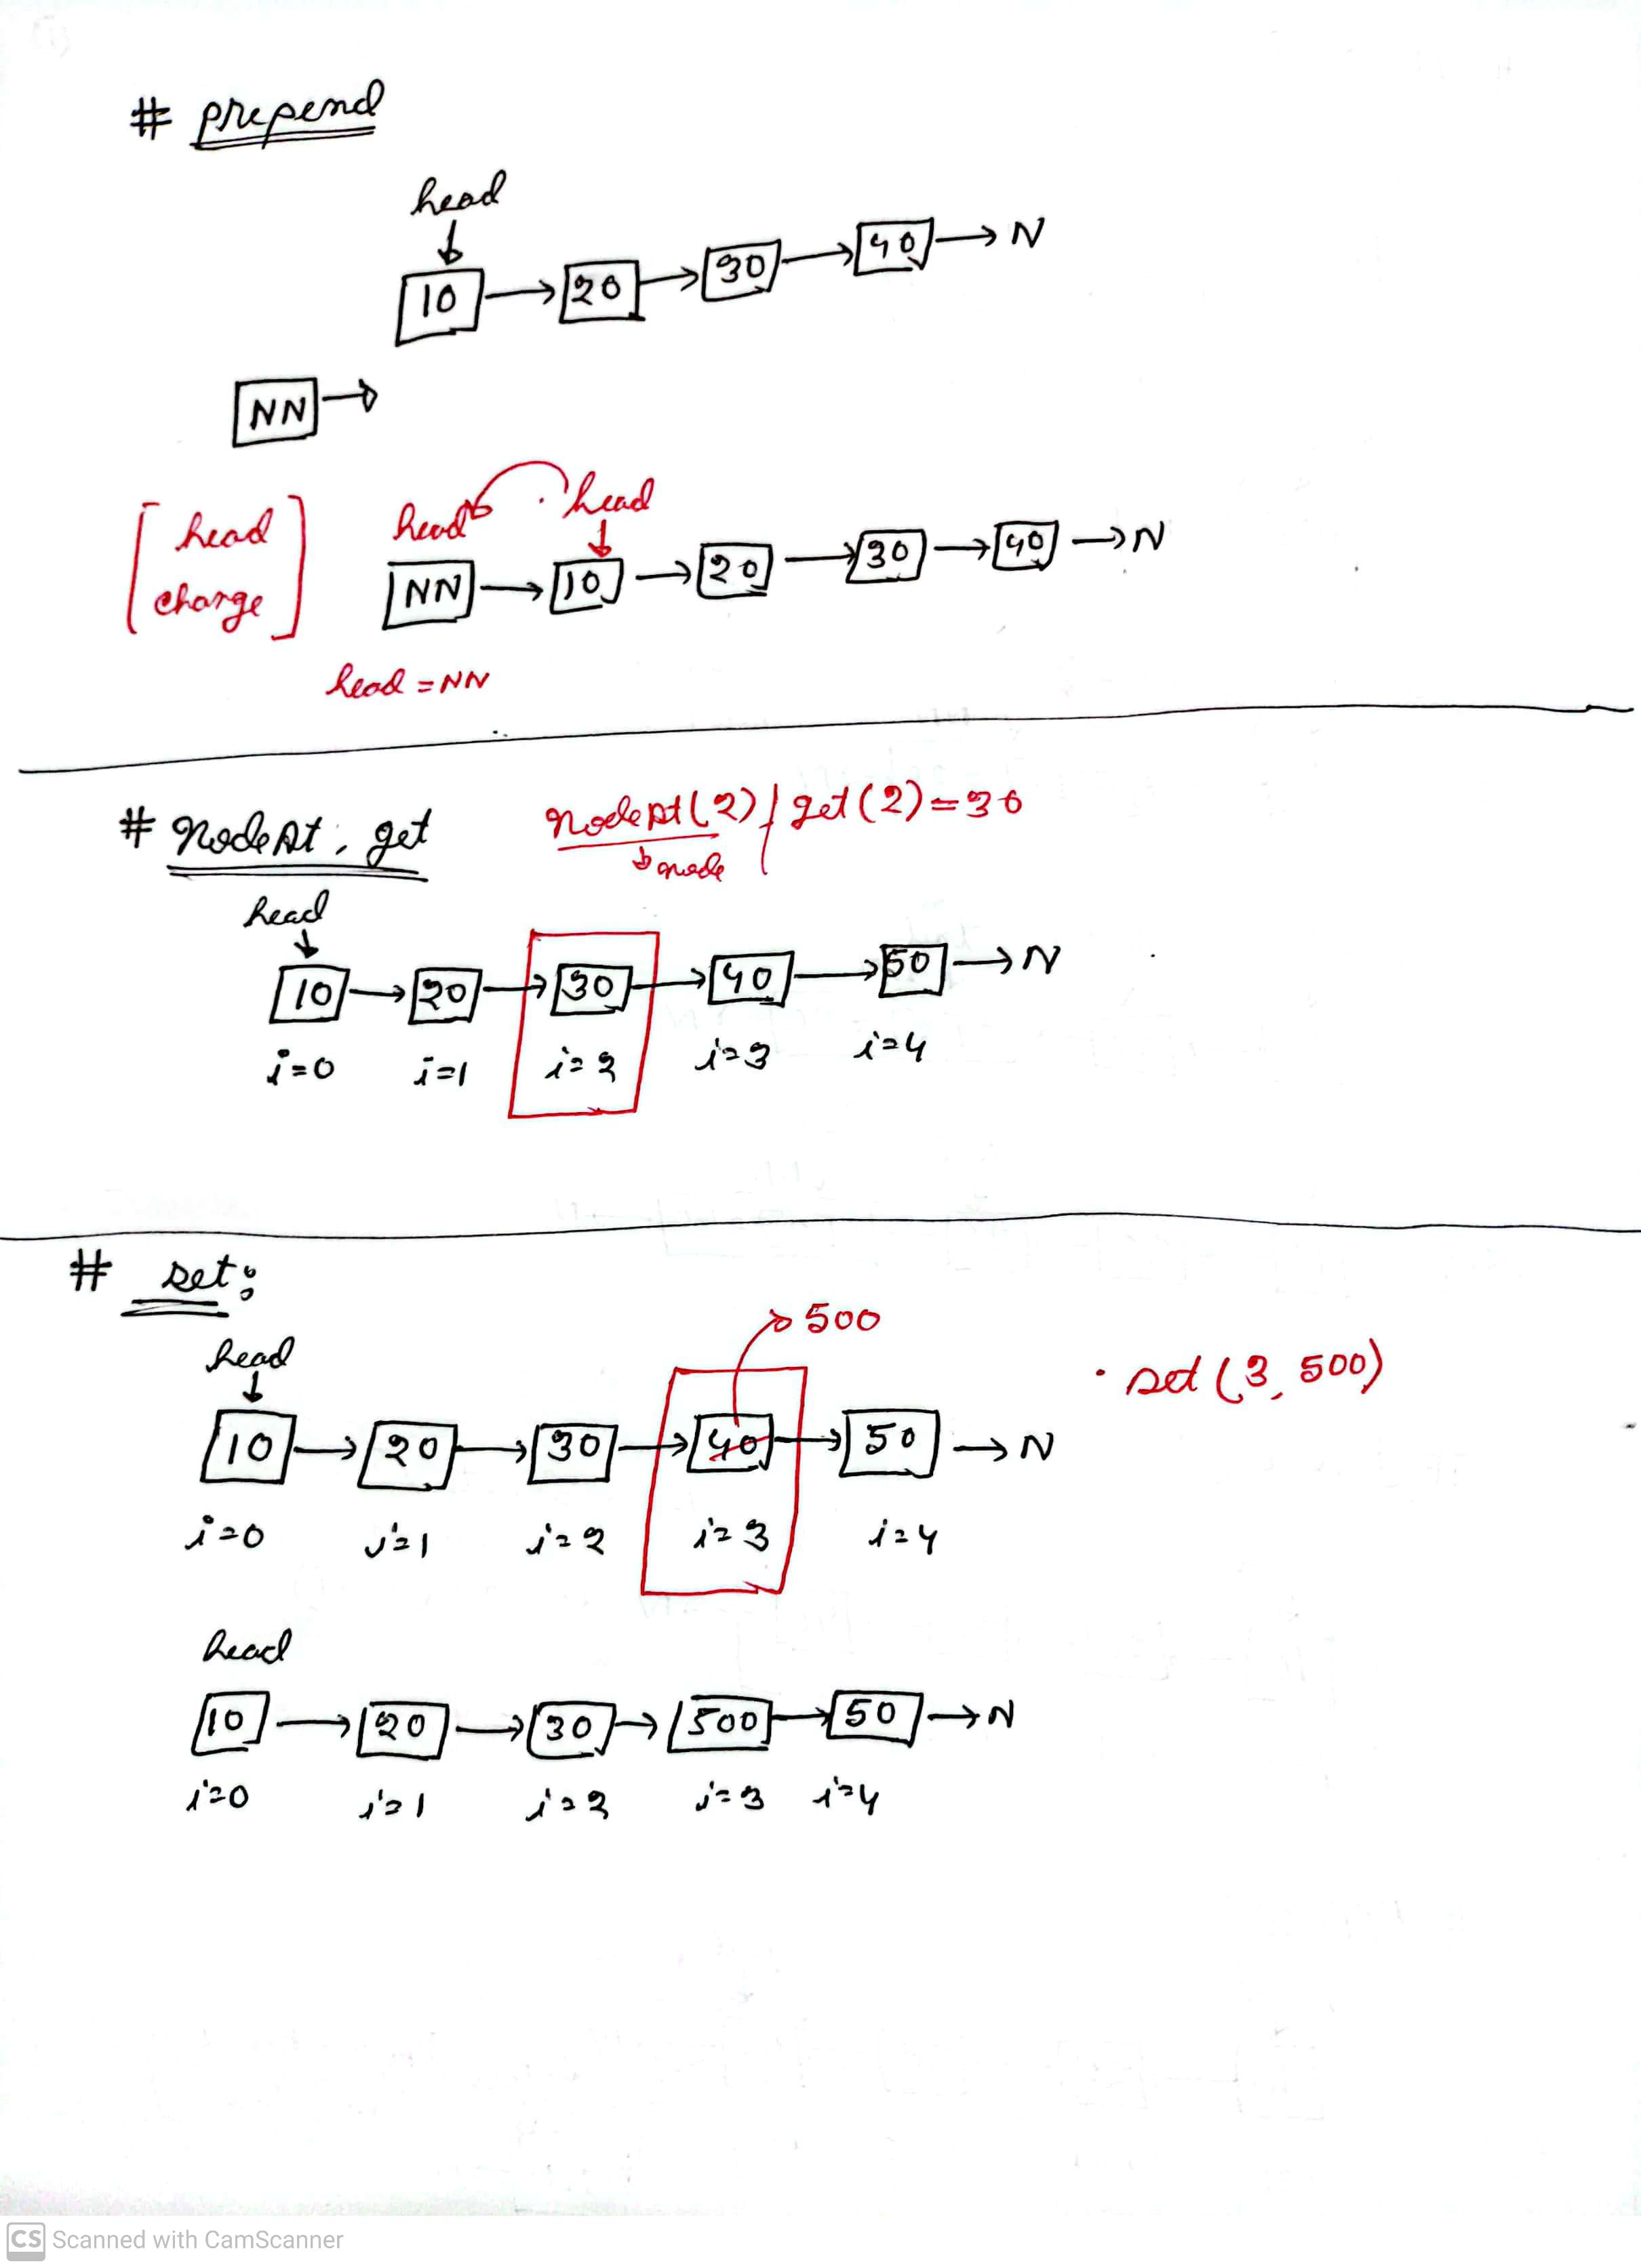 # prepend
head
10 → 20 → 30 → 40 → N
NN →
head head
[head change] NN → 10 → 20 → 30 → 40 → N
head = NN
# NodeAt, get nodeAt(2) / get(2) = 30
node
head
10 → 20 → 30 → 40 → 50 → N
i=0 i=1 i=2 i=3 i=4
# set:
500
head
· set (3, 500)
10 → 20 → 30 → 40 → 50 → N
i=0 i=1 i=2 i=3 i=4
head
10 → 20 → 30 → 500 → 50 → N
i=0 i=1 i=2 i=3 i=4
CS Scanned with CamScanner